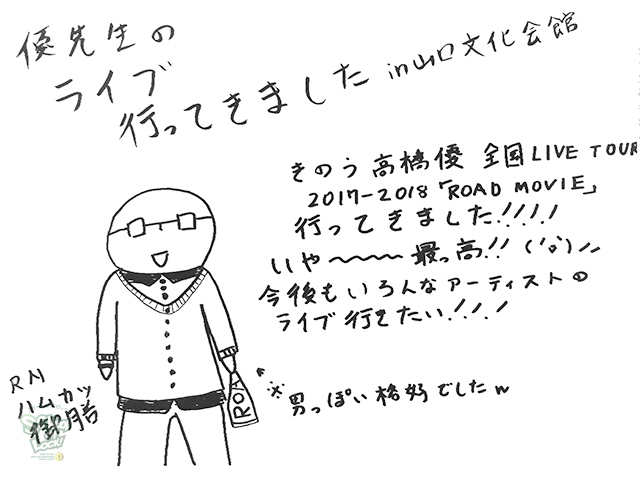 優先生の
ライブ
行ってきました in山口文化会館
きのう 高橋優 全国LIVE TOUR
2017-2018「ROAD MOVIE」
行ってきました!!!!
いや〜〜〜最っ高!!
今後もいろんなアーティストの
ライブ行きたい!!!!
男っぽい格好でしたw
ROA
RN
ハムカツ
LOCK!